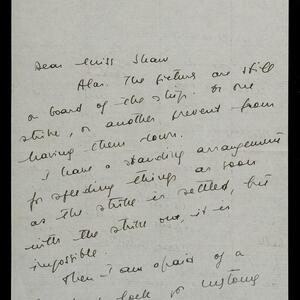 Dear Miss Shaw
Alas. The pictures are still
on board of the ship. Or one
strike, or another prevent from
having them down.
I have a standing arrangement
for speeding things as soon
as the strike is settled, but
with the strike one, it is
impossible.
Then I am afraid of a
lock or customs